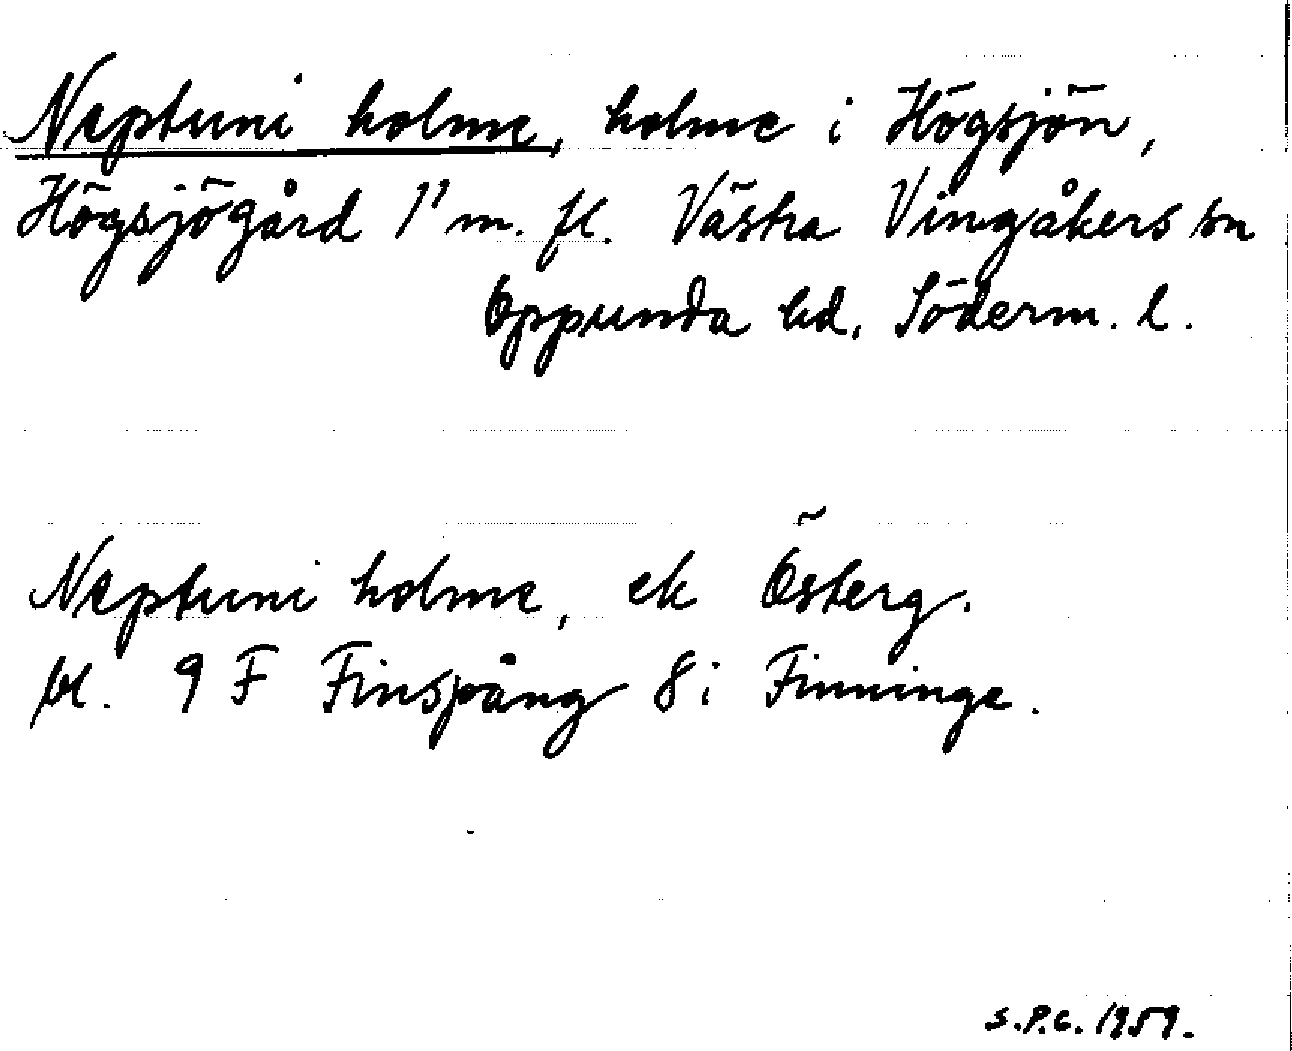 Neptuni holme, holme i Högsjön,
Högsjögård 1¹ m. fl. Västra Vingåkers sn
Oppunda hd, Söderm. l.
Neptuni holme, ek Österg.
bl. 9 F Finspång 8 i Finninge.
S.P.C. 1959.